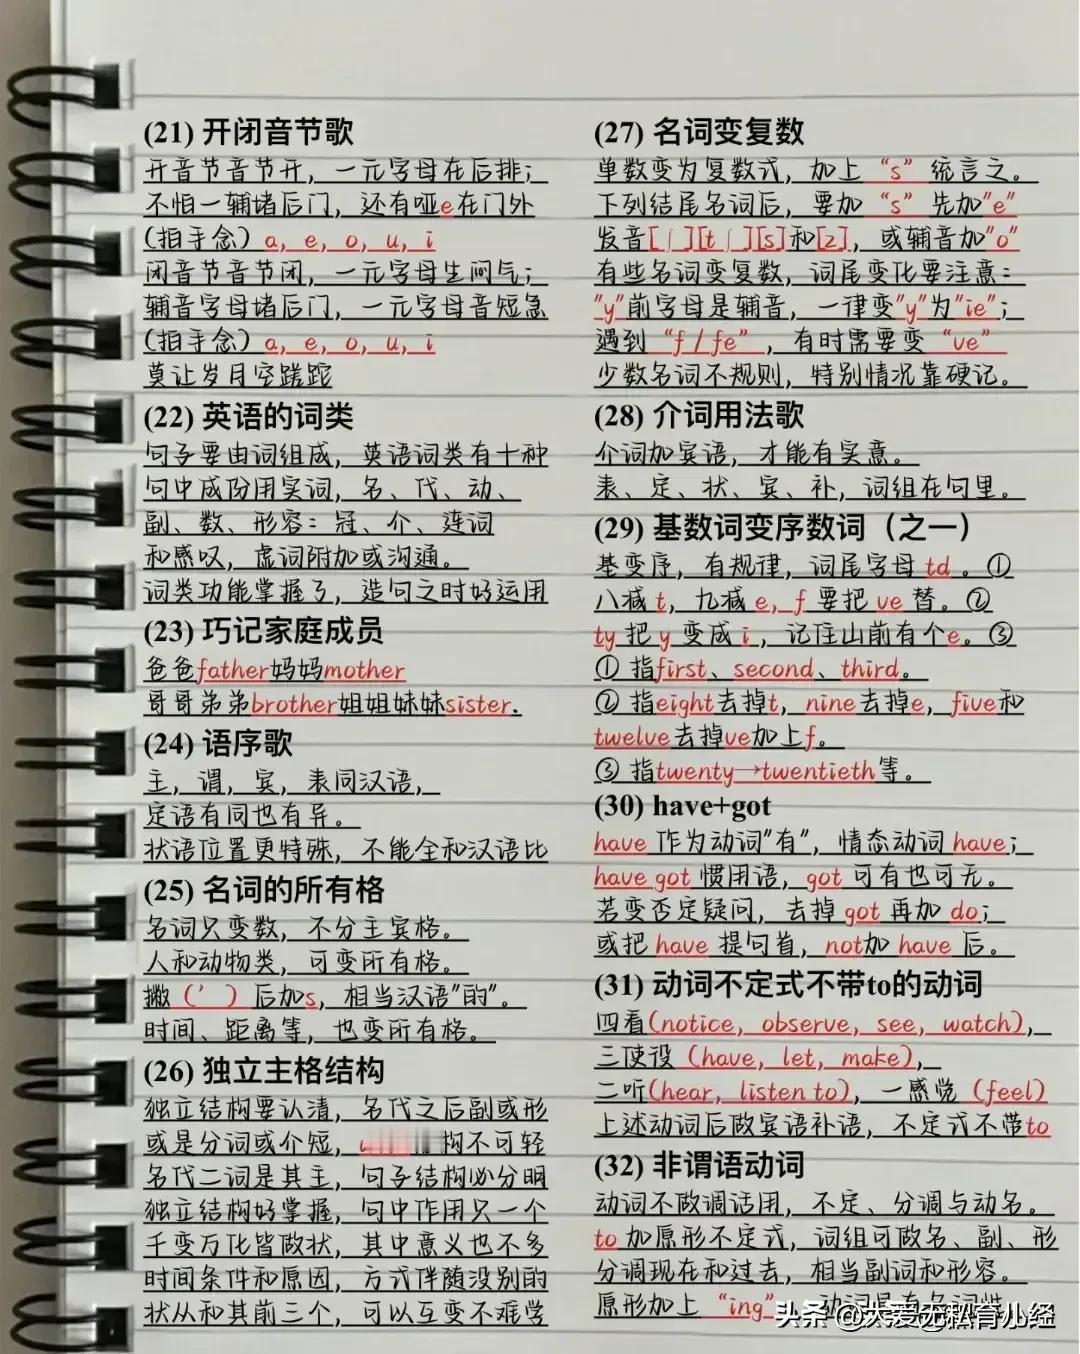 (21) 开闭音节歌
开音节音节开，一元字母在后排；
不怕一辅堵后门，还有哑e在门外
(拍手念) a, e, o, u, i
闭音节音节闭，一元字母生闷气；
辅音字母堵后门，一元字母音短急
(拍手念) a, e, o, u, i
莫让岁月空蹉跎
(22) 英语的词类
句子要由词组成，英语词类有十种
句中成份用实词，名、代、动、
副、数、形容：冠、介、连词
和感叹，虚词附加或沟通。
词类功能掌握了，造句之时好运用
(23) 巧记家庭成员
爸爸father妈妈mother
哥哥弟弟brother姐姐妹妹sister.
(24) 语序歌
主，谓，宾，表同汉语，
定语有同也有异。
状语位置更特殊，不能全和汉语比
(25) 名词的所有格
名词只变数，不分主宾格。
人和动物类，可变所有格。
撇（'）后加s，相当汉语"的"。
时间、距离等，也变所有格。
(26) 独立主格结构
独立结构要认清，名代之后副或形
或是分词或介短，构不可轻
名代二词是其主，句子结构必分明
独立结构好掌握，句中作用只一个
千变万化皆做状，其中意义也不多
时间条件和原因，方式伴随没别的
状从和其前三个，可以互变不难学
(27) 名词变复数
单数变为复数式，加上“s”统言之。
下列结尾名词后，要加“s”先加"e"
发音[ʃ][tʃ][s]和[z]，或辅音加"o"
有些名词变复数，词尾变化要注意：
"y"前字母是辅音，一律变"y"为"ie"；
遇到“f / fe”，有时需要变“ve”
少数名词不规则，特别情况靠硬记。
(28) 介词用法歌
介词加宾语，才能有实意。
表、定、状、宾、补，词组在句里。
(29) 基数词变序数词（之一）
基变序，有规律，词尾字母td。①
八减t，九减e，f要把ve替。②
ty把y变成i，记住山前有个e。③
① 指first、second、third。
② 指eight去掉t，nine去掉e，five和
twelve去掉ve加上f。
③ 指twenty→twentieth等。
(30) have+got
have 作为动词"有"，情态动词 have；
have got 惯用语，got 可有也可无。
若变否定疑问，去掉 got 再加 do；
或把 have 提句首，not加 have 后。
(31) 动词不定式不带to的动词
四看(notice, observe, see, watch)，
三使役（have, let, make)，
二听(hear, listen to)，一感觉（feel)
上述动词后做宾语补语，不定式不带to
(32) 非谓语动词
动词不做调话用，不定、分调与动名。
to 加原形不定式，词组可做名、副、形
分调现在和过去，相当副词和形容。
原形加上“ing”，动词具有名词性
头条 @大爱无私育小经